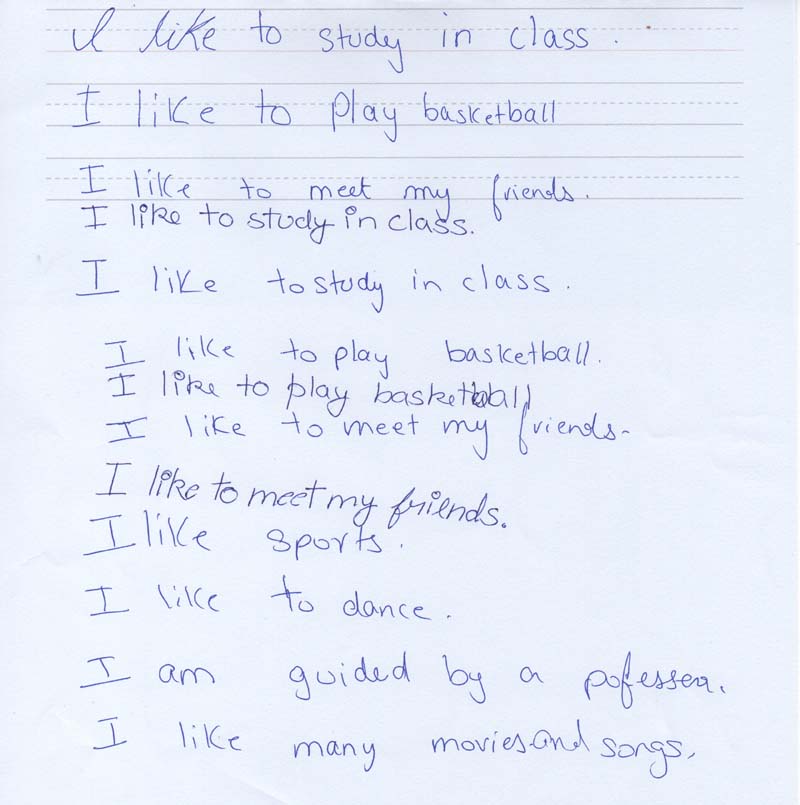 I like to study in class.
I like to play basketball
I like to meet my friends.
I like to study in class.
I like to study in class.
I like to play basketball.
I like to play basketball
I like to meet my friends.
I like to meet my friends.
I like sports.
I like to dance.
I am guided by a pofesser.
I like many movies and songs.